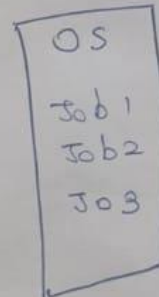 OS
Job 1
Job 2
Jo 3